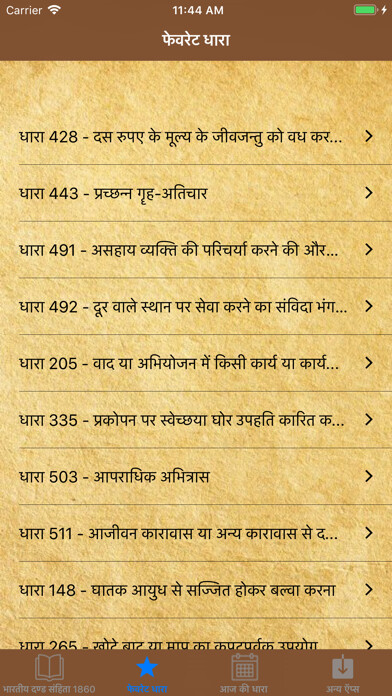 Carrier 11:44 AM
फेवरेट धारा
धारा 428 - दस रुपए के मूल्य के जीवजन्तु को वध कर...
धारा 443 - प्रच्छन्न गृह-अतिचार
धारा 491 - असहाय व्यक्ति की परिचर्या करने की और...
धारा 492 - दूर वाले स्थान पर सेवा करने का संविदा भंग...
धारा 205 - वाद या अभियोजन में किसी कार्य या कार्य...
धारा 335 - प्रकोपन पर स्वेच्छया घोर उपहति कारित क...
धारा 503 - आपराधिक अभित्रास
धारा 511 - आजीवन कारावास या अन्य कारावास से द...
धारा 148 - घातक आयुध से सज्जित होकर बल्वा करना
धारा 265 - खोटे बाट या माप का कपटपूर्वक उपयोग
भारतीय दण्ड संहिता 1860 फेवरेट धारा आज की धारा अन्य ऍप्स